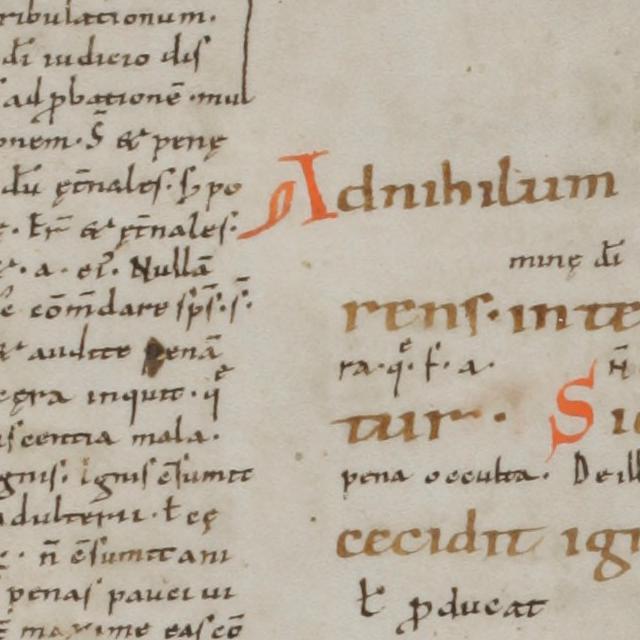 tribulationum.
dī iudicio dis
ad ꝓbationē. mul
onem. S̄ & penę
dū ęt̄nales. s; po
. & ęt̄nales.
. a. Nullā
comdare sp̄s.
& audite penā
ęgra inquit.
escentia mala.
gnis. Ignis
adulterii. ł
. n̄
penas pauci ui
maxime eas cō
Ad nihilum
minę dī
rens. inte
ra. f. a. n̄
tur. Si
pena occulta. De ill
cecidit ign
ł ꝓducat